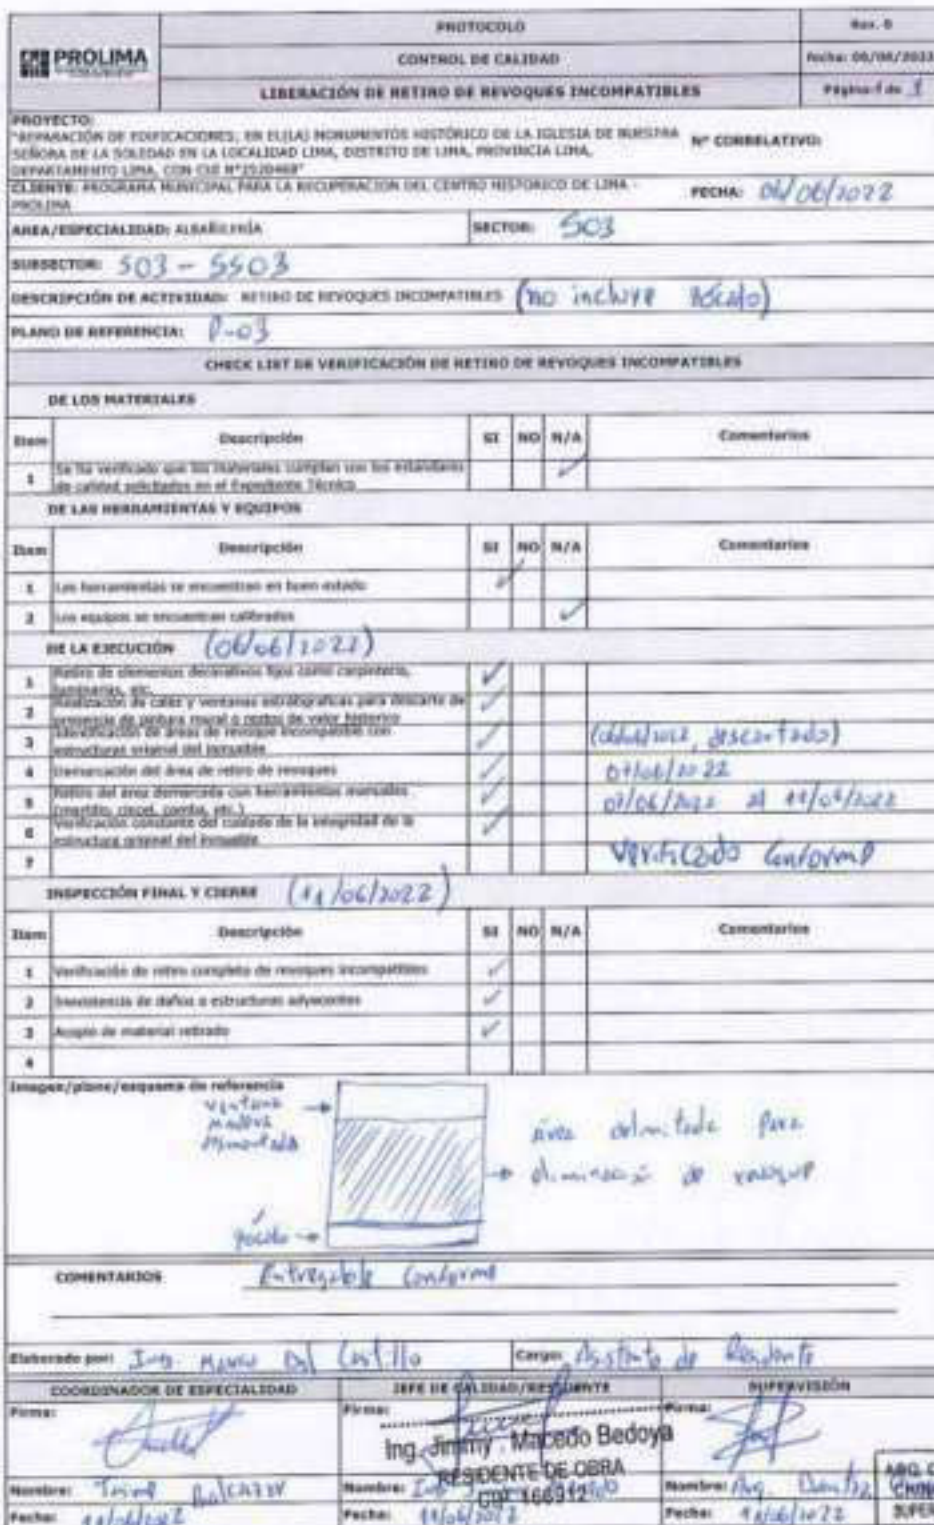 PROLIMA
PROTOCOLO
Rev. 0
CONTROL DE CALIDAD
Fecha: 06/06/2022
LIBERACIÓN DE RETIRO DE REVOQUES INCOMPATIBLES
Página 1 de 1
PROYECTO:
"REPARACIÓN DE EDIFICACIONES; EN EL(LA) MONUMENTOS HISTÓRICO DE LA IGLESIA DE NUESTRA
SEÑORA DE LA SOLEDAD EN LA LOCALIDAD LIMA, DISTRITO DE LIMA, PROVINCIA LIMA,
DEPARTAMENTO LIMA, CON CUI N°2520468"
N° CORRELATIVO:
CLIENTE: PROGRAMA MUNICIPAL PARA LA RECUPERACION DEL CENTRO HISTORICO DE LIMA -
PROLIMA
FECHA: 06/06/2022
AREA/ESPECIALIDAD: ALBAÑILERÍA
SECTOR: S03
SUBSECTOR: S03 - SS03
DESCRIPCIÓN DE ACTIVIDAD: RETIRO DE REVOQUES INCOMPATIBLES (no incluye zócalo)
PLANO DE REFERENCIA: P-03
CHECK LIST DE VERIFICACIÓN DE RETIRO DE REVOQUES INCOMPATIBLES
DE LOS MATERIALES
Item Descripción SI NO N/A Comentarios
1 Se ha verificado que los materiales cumplan con los estándares
de calidad solicitados en el Expediente Técnico ✓
DE LAS HERRAMIENTAS Y EQUIPOS
Item Descripción SI NO N/A Comentarios
1 Las herramientas se encuentran en buen estado ✓
2 Los equipos se encuentran calibrados ✓
DE LA EJECUCIÓN (06/06/2022)
1 Retiro de elementos decorativos fijos como carpintería,
luminarias, etc. ✓
2 Realización de calas y ventanas estratigráficas para descarte de
presencia de pintura mural o restos de valor histórico ✓
3 Identificación de áreas de revoque incompatible con
estructuras original del inmueble ✓ (06/06/2022, descartado)
4 Demarcación del área de retiro de revoques ✓ 07/06/2022
5 Retiro del área demarcada con herramientas manuales
(martillo, cincel, comba, etc.) ✓ 07/06/2022 al 11/06/2022
6 Verificación constante del cuidado de la integridad de la
estructura original del inmueble ✓
7 Verificado Conforme
INSPECCIÓN FINAL Y CIERRE (11/06/2022)
Item Descripción SI NO N/A Comentarios
1 Verificación de retiro completo de revoques incompatibles ✓
2 Inexistencia de daños a estructuras adyacentes ✓
3 Acopio de material retirado ✓
4
Imagen/plano/esquema de referencia
ventana
madera
desmontada
área delimitada para
eliminación de revoque
zócalo
COMENTARIOS Entregable Conforme
Elaborado por: Ing. Marco Del Castillo Cargo: Asistente de Residente
COORDINADOR DE ESPECIALIDAD
JEFE DE CALIDAD/RESIDENTE
SUPERVISIÓN
Firma:
Firma:
Firma:
Ing. Jimmy Macedo Bedoya
RESIDENTE DE OBRA
CIP 166912
ARQ.
SUPER
Nombre:
Nombre: Ing.
Nombre: Arq.
Fecha: 11/06/2022
Fecha: 11/06/2022
Fecha: 11/06/2022